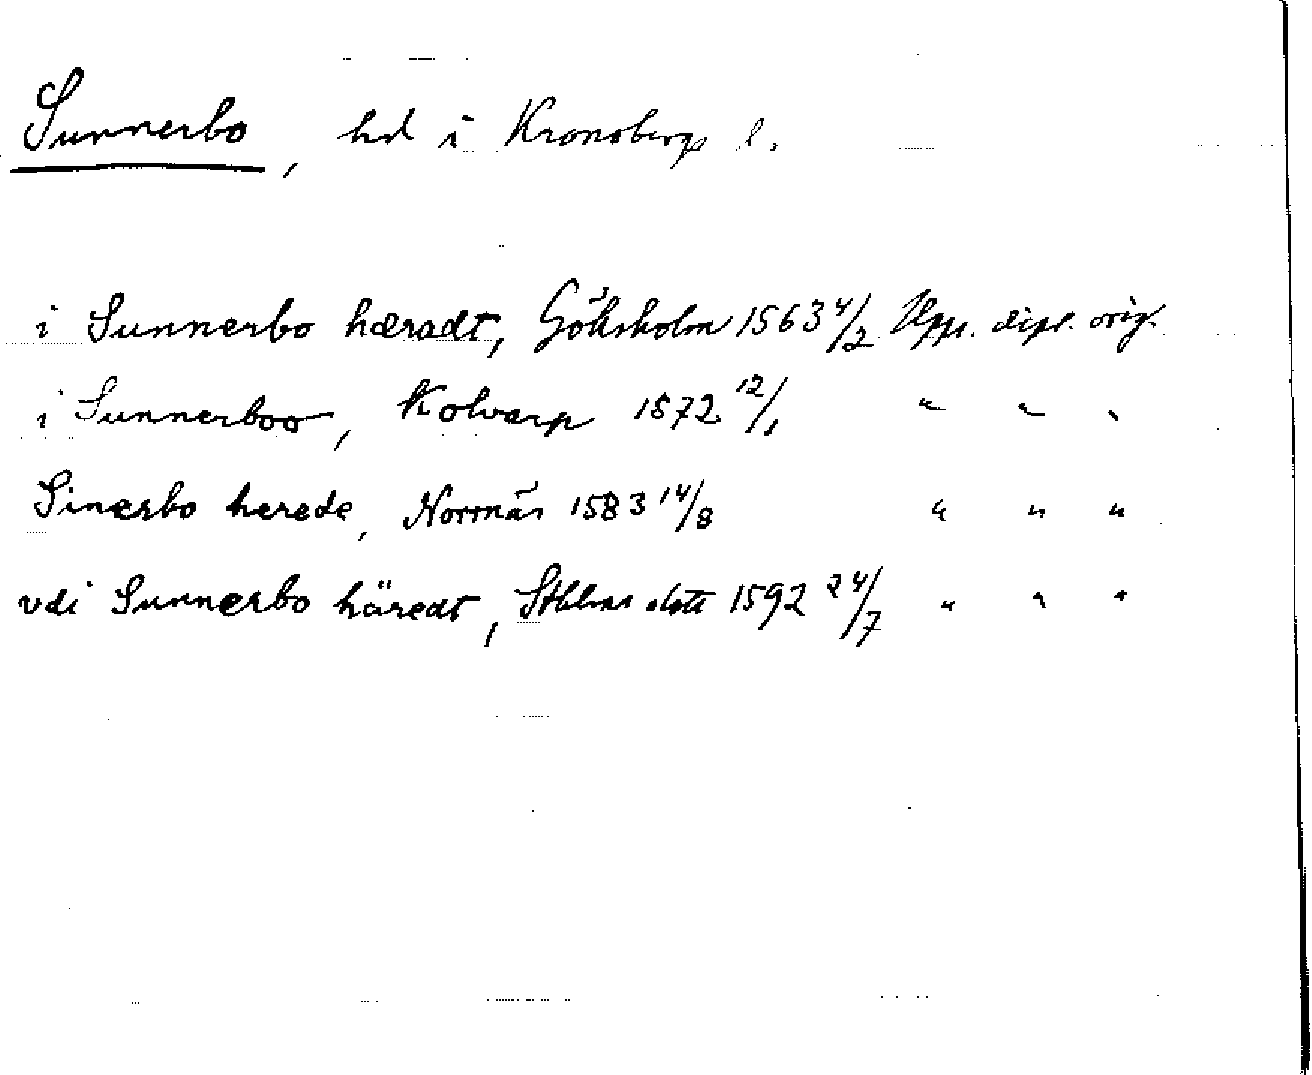 Sunnerbo, hd i Kronobergs l.
i Sunnerbo hæradt, Göksholm 1563 4/2 Upps. dipl. orig.
i Sunnerboo, Kolvarp 1572 12/1 " " "
Sinerbo herede, Norrnäs 1583 14/8 " " "
vdi Sunnerbo häredt, Sthlms slott 1592 24/7 " " "